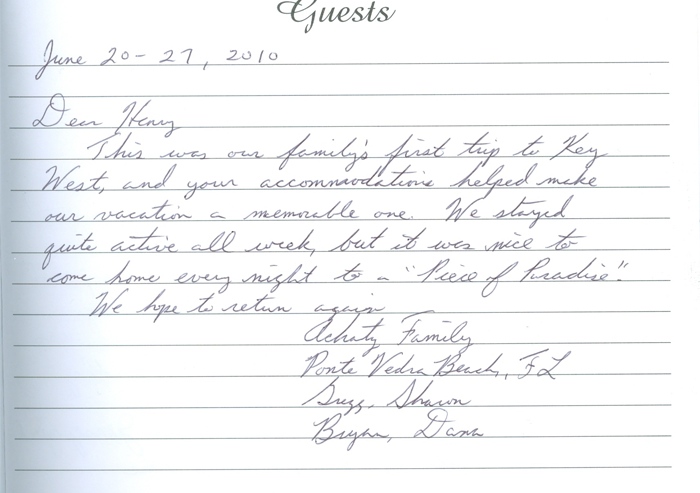 Guests
June 20-27, 2010
Dear Henry
This was our family's first trip to Key
West, and your accommodations helped make
our vacation a memorable one. We stayed
quite active all week, but it was nice to
come home every night to a "Piece of Paradise".
We hope to return again
Achatz Family
Ponte Vedra Beach, FL
Gregg, Sharon
Bryan, Dana